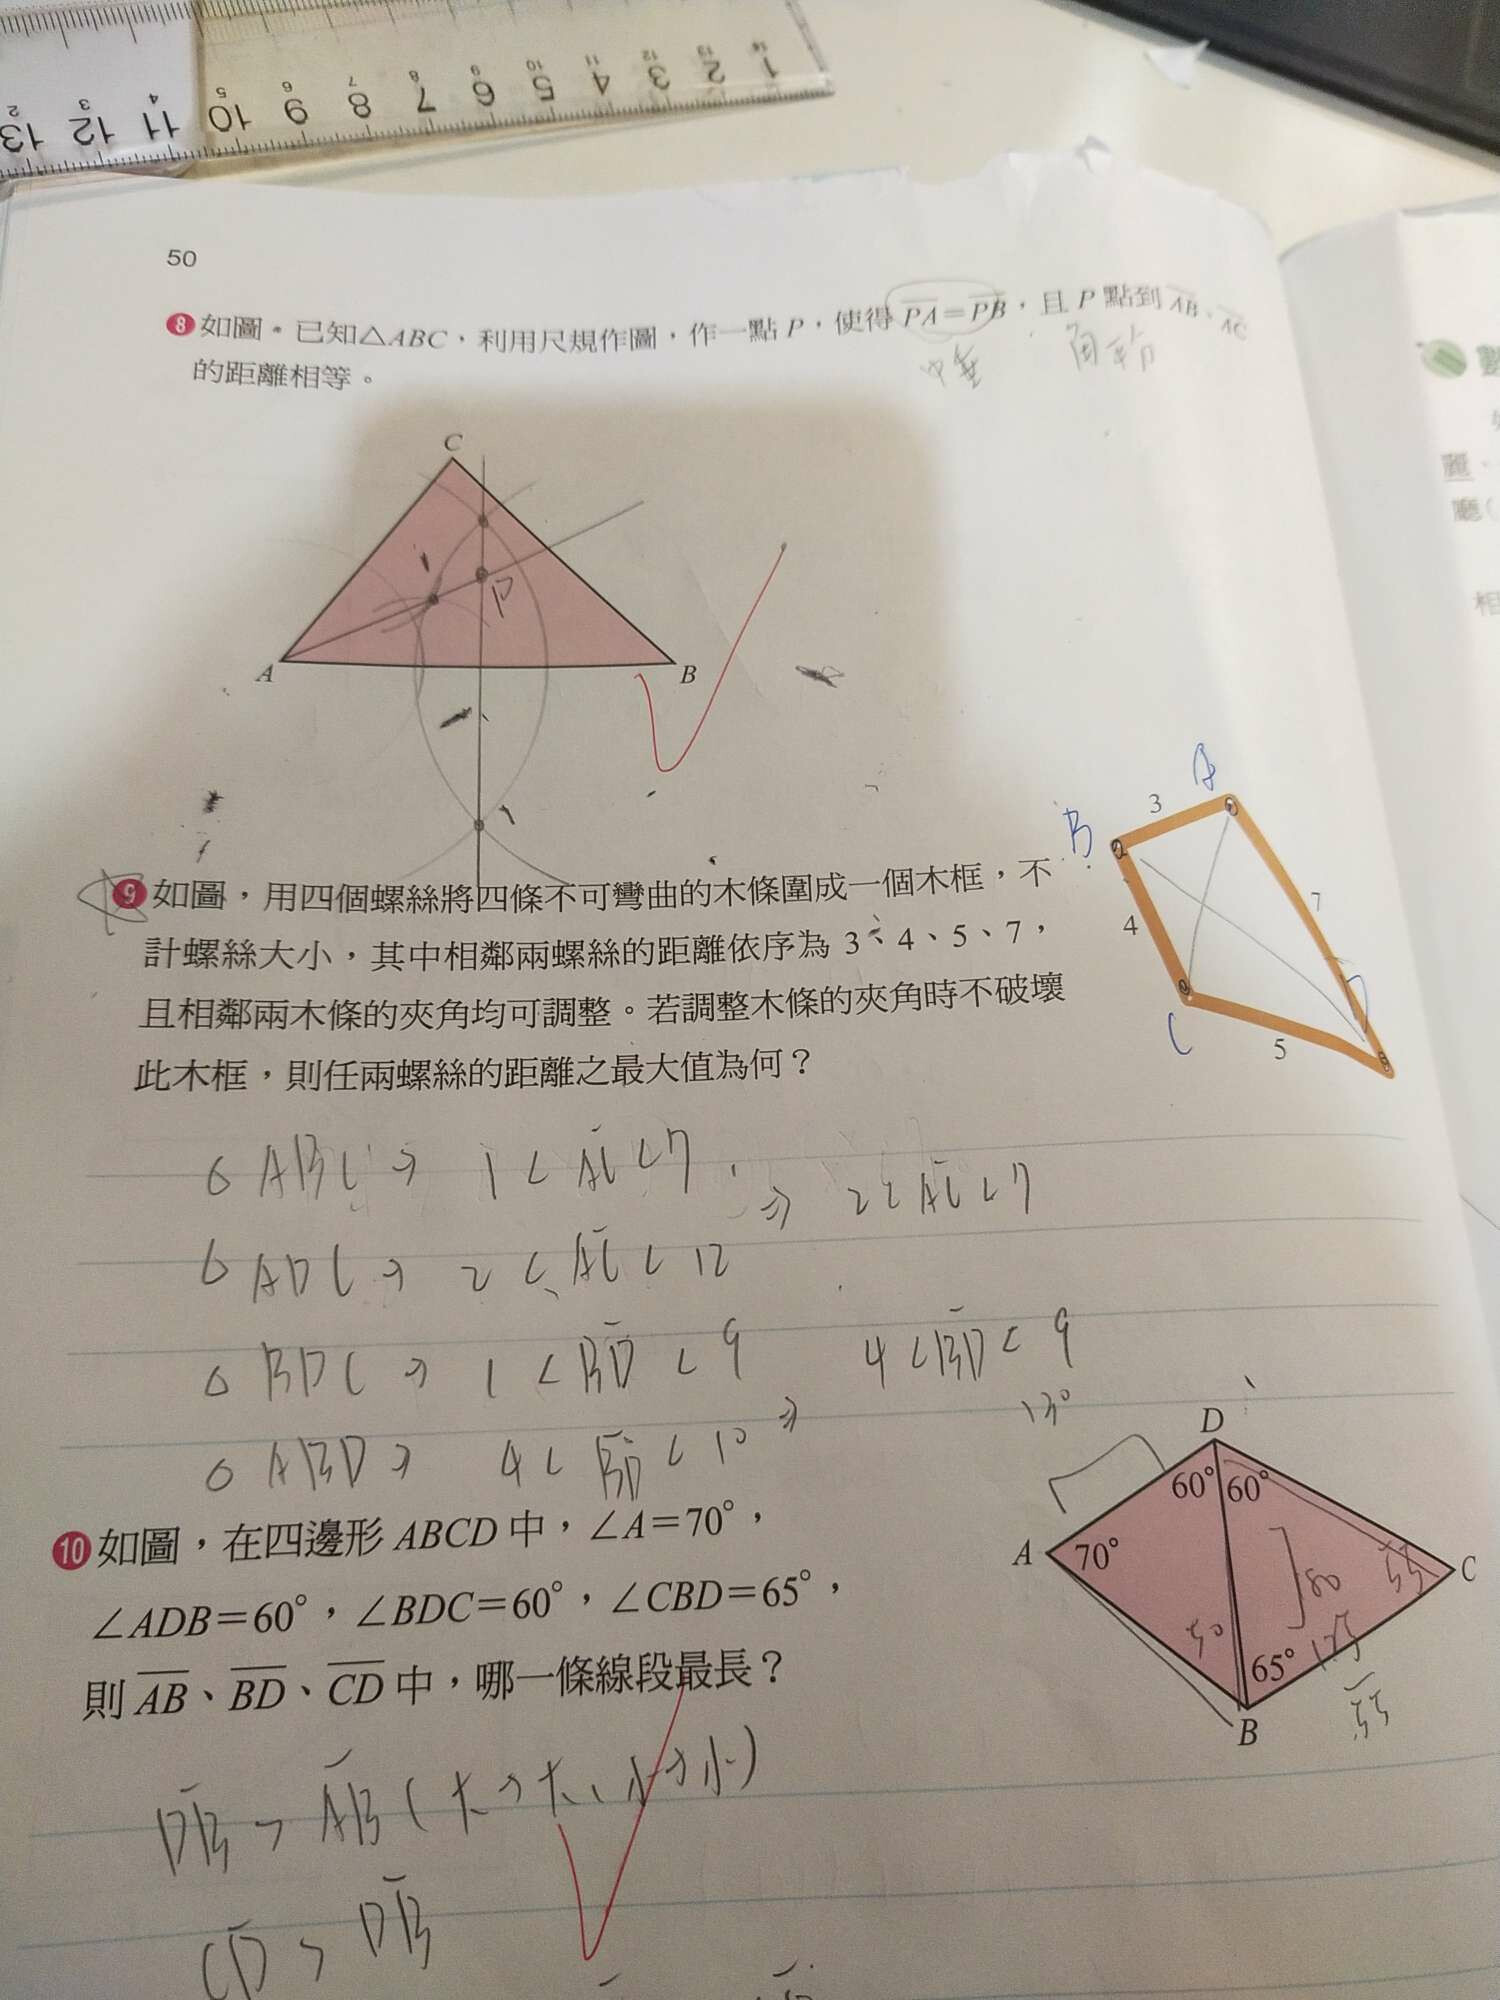 13 12 11 10 9 8 7 6 5 4 3 2 1
2 3 4 5 6 7 8 9 10 11 12 13 14
50
8 如圖，已知△ABC，利用尺規作圖，作一點 P，使得 PA＝PB，且 P 點到 AB、AC
的距離相等。
中垂 角平
C
P
A B
數
麗、
廳(
相
9 如圖，用四個螺絲將四條不可彎曲的木條圍成一個木框，不
計螺絲大小，其中相鄰兩螺絲的距離依序為 3、4、5、7，
且相鄰兩木條的夾角均可調整。若調整木條的夾角時不破壞
此木框，則任兩螺絲的距離之最大值為何？
A
B 3
4 7
D
C 5
△ABC → 1 < AC < 7
⇒ 2 < AC < 7
△ADC → 2 < AC < 12
△BDC → 1 < BD < 9 4 < BD < 9
△ABD → 4 < BD < 10 ⇒
10 如圖，在四邊形 ABCD 中，∠A＝70°，
∠ADB＝60°，∠BDC＝60°，∠CBD＝65°，
則 AB、BD、CD 中，哪一條線段最長？
D
60° 60°
A 70° C
50 65° 55
B
DB > AB (大→大、小→小)
CD > DB